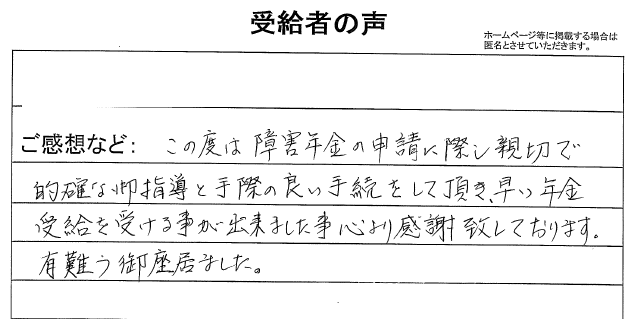 受給者の声
ホームページ等に掲載する場合は
匿名とさせていただきます。
ご感想など： この度は障害年金の申請に際し親切で
的確な御指導と手際の良い手続をして頂き、早い年金
受給を受ける事が出来ました事心より感謝致しております。
有難う御座居ました。